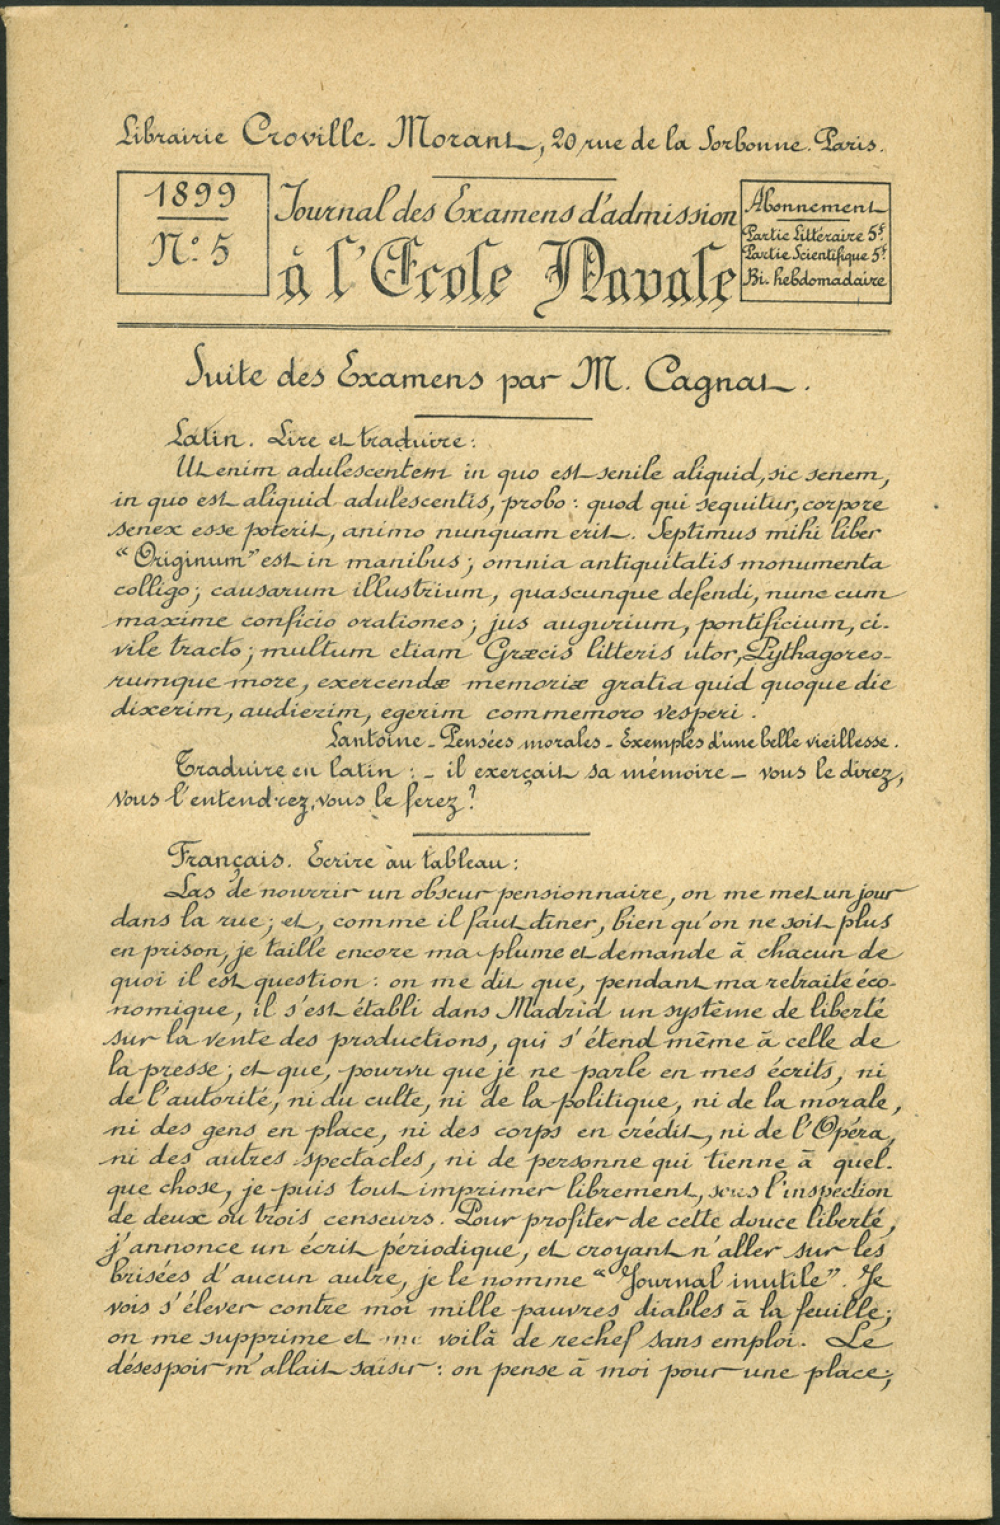 Librairie Croville-Morant, 20 rue de la Sorbonne. Paris.
1899
N° 5
Journal des Examens d'admission
à l'Ecole Navale
Abonnement
Partie Littéraire 5f.
Partie Scientifique 5f.
Bi-hebdomadaire
Suite des Examens par M. Cagnat.
Latin. Lire et traduire:
Ut enim adulescentem in quo est senile aliquid, sic senem,
in quo est aliquid adulescentis, probo: quod qui sequitur, corpore
senex esse poterit, animo nunquam erit. Septimus mihi liber
"Originum" est in manibus; omnia antiquitatis monumenta
colligo; causarum illustrium, quascunque defendi, nunc cum
maxime conficio orationes; jus augurium, pontificium, ci-
vile tracto; multum etiam Græcis litteris utor, Pythagoreo-
rumque more, exercendæ memoriæ gratia quid quoque die
dixerim, audierim, egerim commemoro vesperi.
Lantoine - Pensées morales - Exemples d'une belle vieillesse.
Traduire en latin: - il exerçait sa mémoire - vous le direz,
vous l'entendrez, vous le ferez?
Français. Ecrire au tableau:
Las de nourrir un obscur pensionnaire, on me met un jour
dans la rue; et, comme il faut dîner, bien qu'on ne soit plus
en prison, je taille encore ma plume et demande à chacun de
quoi il est question: on me dit que, pendant ma retraite éco-
nomique, il s'est établi dans Madrid un système de liberté
sur la vente des productions, qui s'étend même à celle de
la presse; et que, pourvu que je ne parle en mes écrits, ni
de l'autorité, ni du culte, ni de la politique, ni de la morale,
ni des gens en place, ni des corps en crédit, ni de l'Opéra,
ni des autres spectacles, ni de personne qui tienne à quel-
que chose, je puis tout imprimer librement, sous l'inspection
de deux ou trois censeurs. Pour profiter de cette douce liberté,
j'annonce un écrit périodique, et croyant n'aller sur les
brisées d'aucun autre, je le nomme "Journal inutile". Je
vois s'élever contre moi mille pauvres diables à la feuille;
on me supprime et me voilà de rechef sans emploi. Le
désespoir m'allait saisir: on pense à moi pour une place;